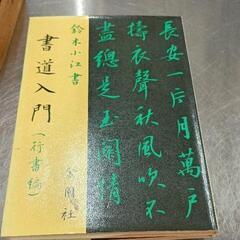 長安一片月萬戸
擣衣聲秋風吹不
盡總是玉關情
鈴木小江書
書道入門
(行書編)
金園社